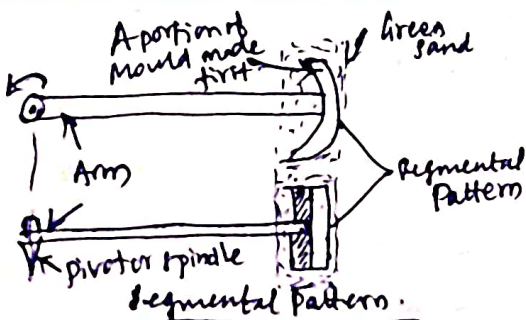 A portion of
Mould made
first
Green
sand
Arm
Segmental
Pattern
pivot or spindle
Segmental Pattern.